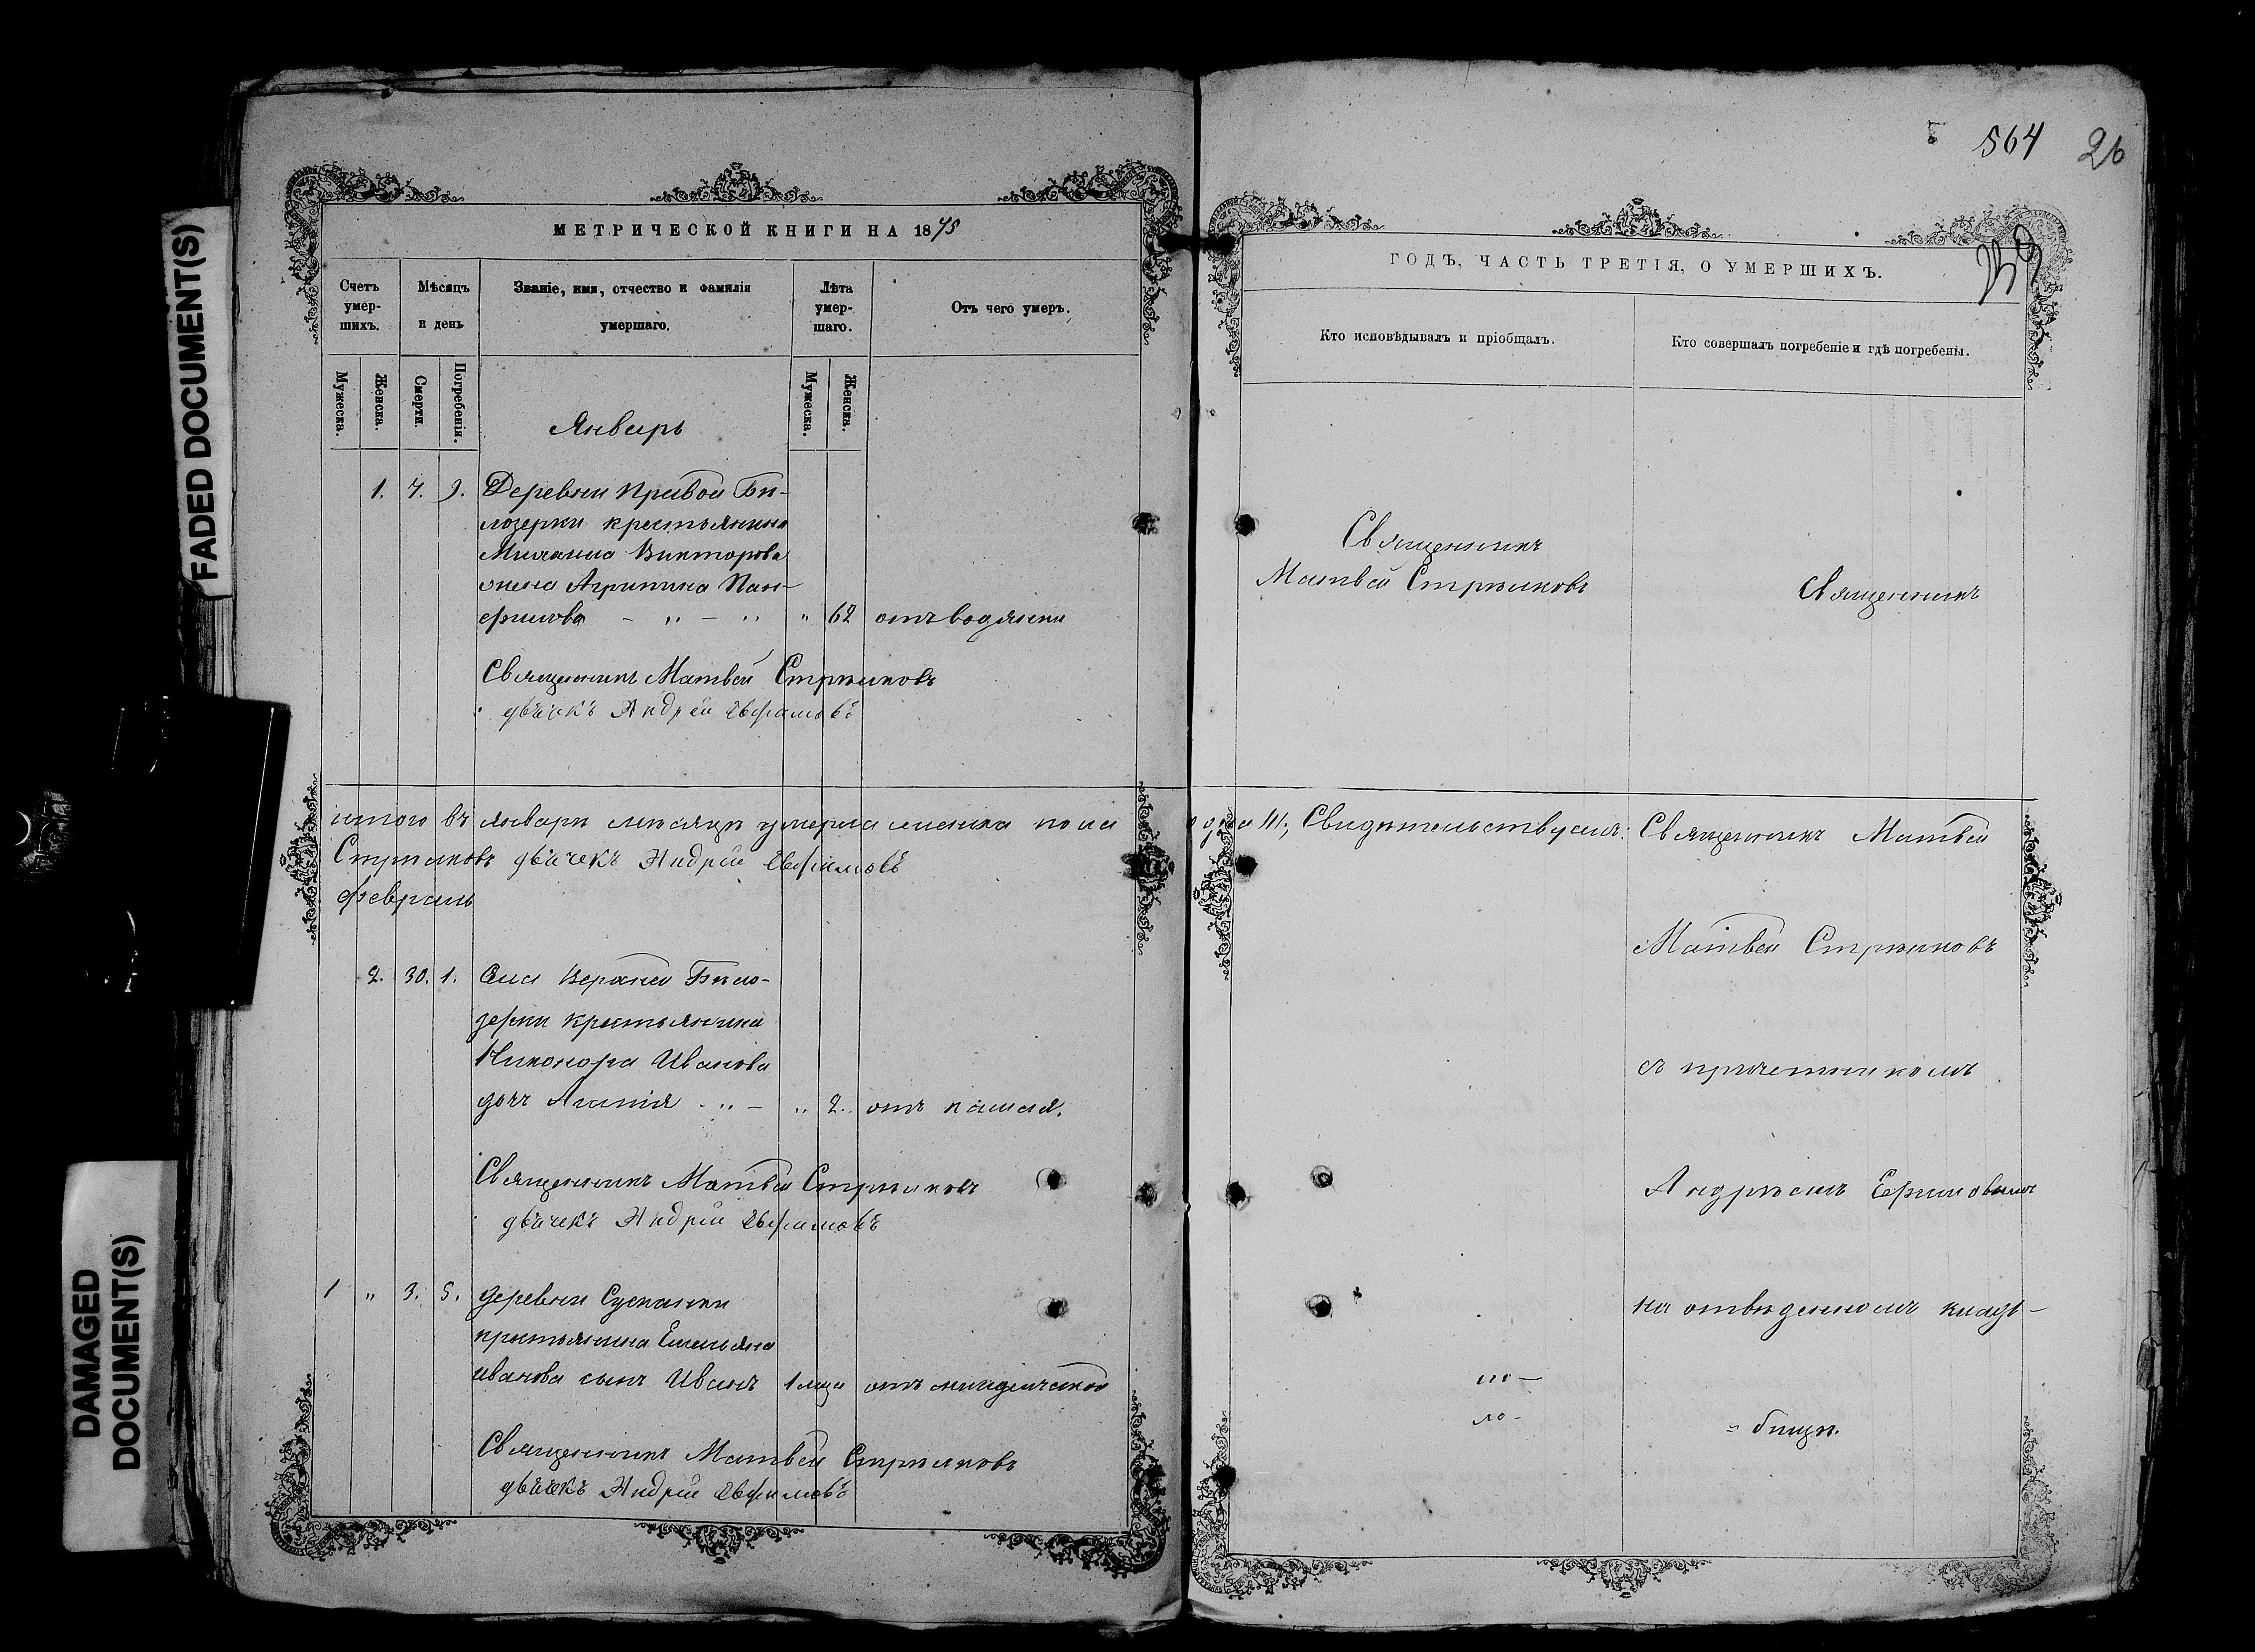 FADED DOCUMENT(S)
DAMAGED
DOCUMENT(S)
МЕТРИЧЕСКОЙ КНИГИ НА 1875
Счетъ умер-шихъ.
Мѣсяцъ и день
Званіе, имя, отчество и фамилія умершаго.
Лѣта умер-шаго.
Отъ чего умеръ.
Мужеска.
Женска.
Смерти.
Погребенія.
Мужеска.
Женска.
Январь
1. 7. 9. Деревни Правой Бѣ-
лозерки крестьянина
Викторова
жена Агрипина Пан-
филова - " - " " 62 отъ водянки
Священникъ Матвей Стрѣлковъ
дьячекъ Андрей Евфимовъ
итого въ январѣ мѣсяцѣ умерла женска пола
Стрѣлковъ дьячекъ Андрей Евфимовъ
Февраль
2. 30. 1. Села Верхней Бѣло-
зерки крестьянина
Никонора Иванова
дочь - " - " 2. отъ кашля.
Священникъ Матвей Стрѣлковъ
дьячекъ Андрей Евфимовъ
1 " 3. 5. деревни Сусканки
крестьянина Емельяна
Иванова сынъ Иванъ 1 отъ младенческой
Священникъ Матвей Стрѣлковъ
дьячекъ Андрей Евфимовъ
564 26
ГОДЪ, ЧАСТЬ ТРЕТІЯ, О УМЕРШИХЪ.
Кто исповѣдывалъ и пріобщалъ.
Кто совершалъ погребеніе и гдѣ погребены.
Священникъ
Матвей Стрѣлковъ
Священникъ
одна /1/; Свидѣтельствуемъ: Священникъ Матвей
Матвей Стрѣлковъ
съ причетникомъ
Андрѣемъ Ефимовымъ
на отведенномъ кладъ-
= бищѣ.